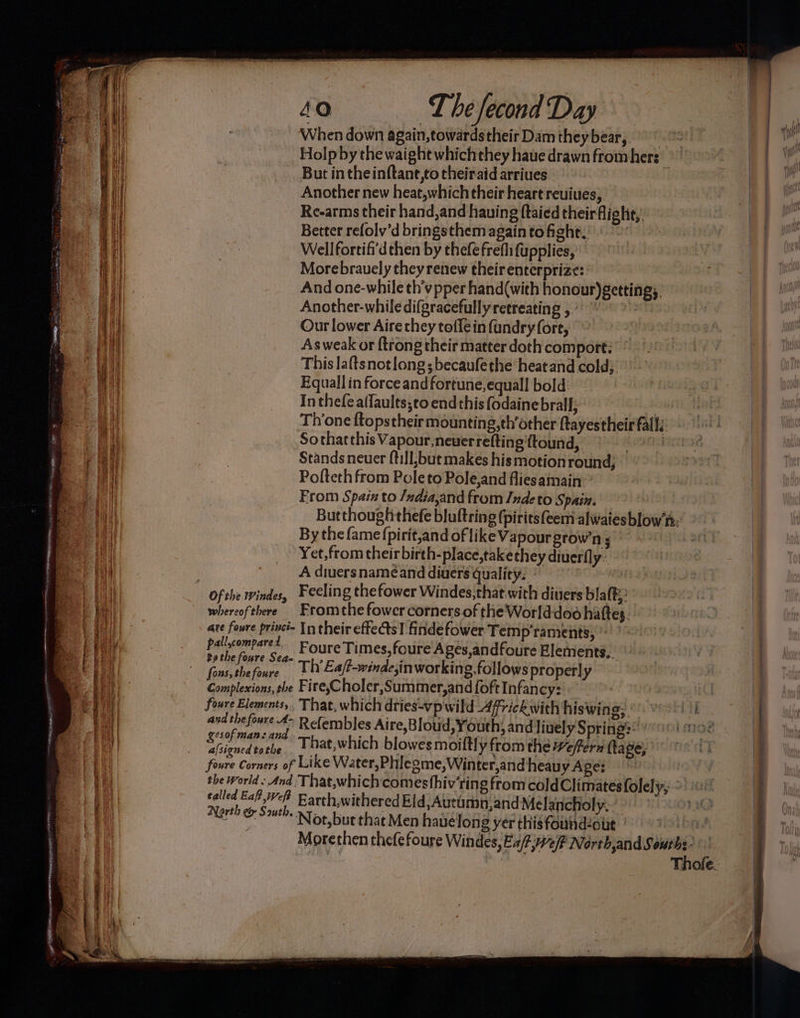 40 The ſecond Day
When down again,towards their Dam they bear,
Holp by the waight which they haue drawn from her:
But in the inſtant,to their aid arriues
Another new heat,which their heart reuiues,
Re-arms their hand,and hauing ſtaied their flight,
Better reſolv'd brings them again to fight.
Well fortifi'd then by theſe freſh ſupplies,
More brauely they renew their enterprize:
And one-while th'vpper hand (with honour)getting,
Another-while diſgracefully retreating,
Our lower Aire they toſſe in ſundry ſort,
As weak or ſtrong their matter doth comport.
This laſts not long; becauſe the heat and cold,
Equall in force and fortune,equall bold
In theſe aſſaults;to end this ſodaine brall,
Th'one ſtops their mounting,th'other ſtayes their fall:
So that this Vapour,neuer reſting ſtound,
Stands neuer ſtill,but makes his motion round,
Poſteth from Pole to Pole,and flies amain
From Spain to India,and from Inde to Spain.
But though theſe bluſtring ſpirits ſeem alwaies blow'n
By the ſame ſpirit,and of like Vapour grow'n;
Yet,from their birth-place,take they diuerſly
A diuers name and diuers quality.
Of the Windes, whereof there are foure principall,compared to the foure Seaſons, the foure Complexions, the foure Elements, and the foure Ages of man: and aſsigned to the foure Corners of the World: And called Eaſt, Weſt North & South.
Feeling the fower Windes,that with diuers blaſt,
From the fower corners of the World doo haſte;
In their effects I finde fower Temp'raments,
Foure Times,foure Ages,and foure Elements.
Th' Eaſt-winde,in working,follows properly
Fire,Choler,Summer,and ſoft Infancy:
That, which dries-vp wild Affrick with his wing,
Reſembles Aire,Bloud,Youth, and liuely Spring:
That,which blowes moiſtly from the Weſtern ſtage,
Like Water,Phlegme,Winter,and heauy Age:
That,which comes ſhiv'ring from cold Climates ſolely,
Earth,withered Eld,Autumn,and Melancholy.
Not,but that Men haue long yer this found-out
More then theſe foure Windes, Eaſt,Weſt North,and South:
Thoſe